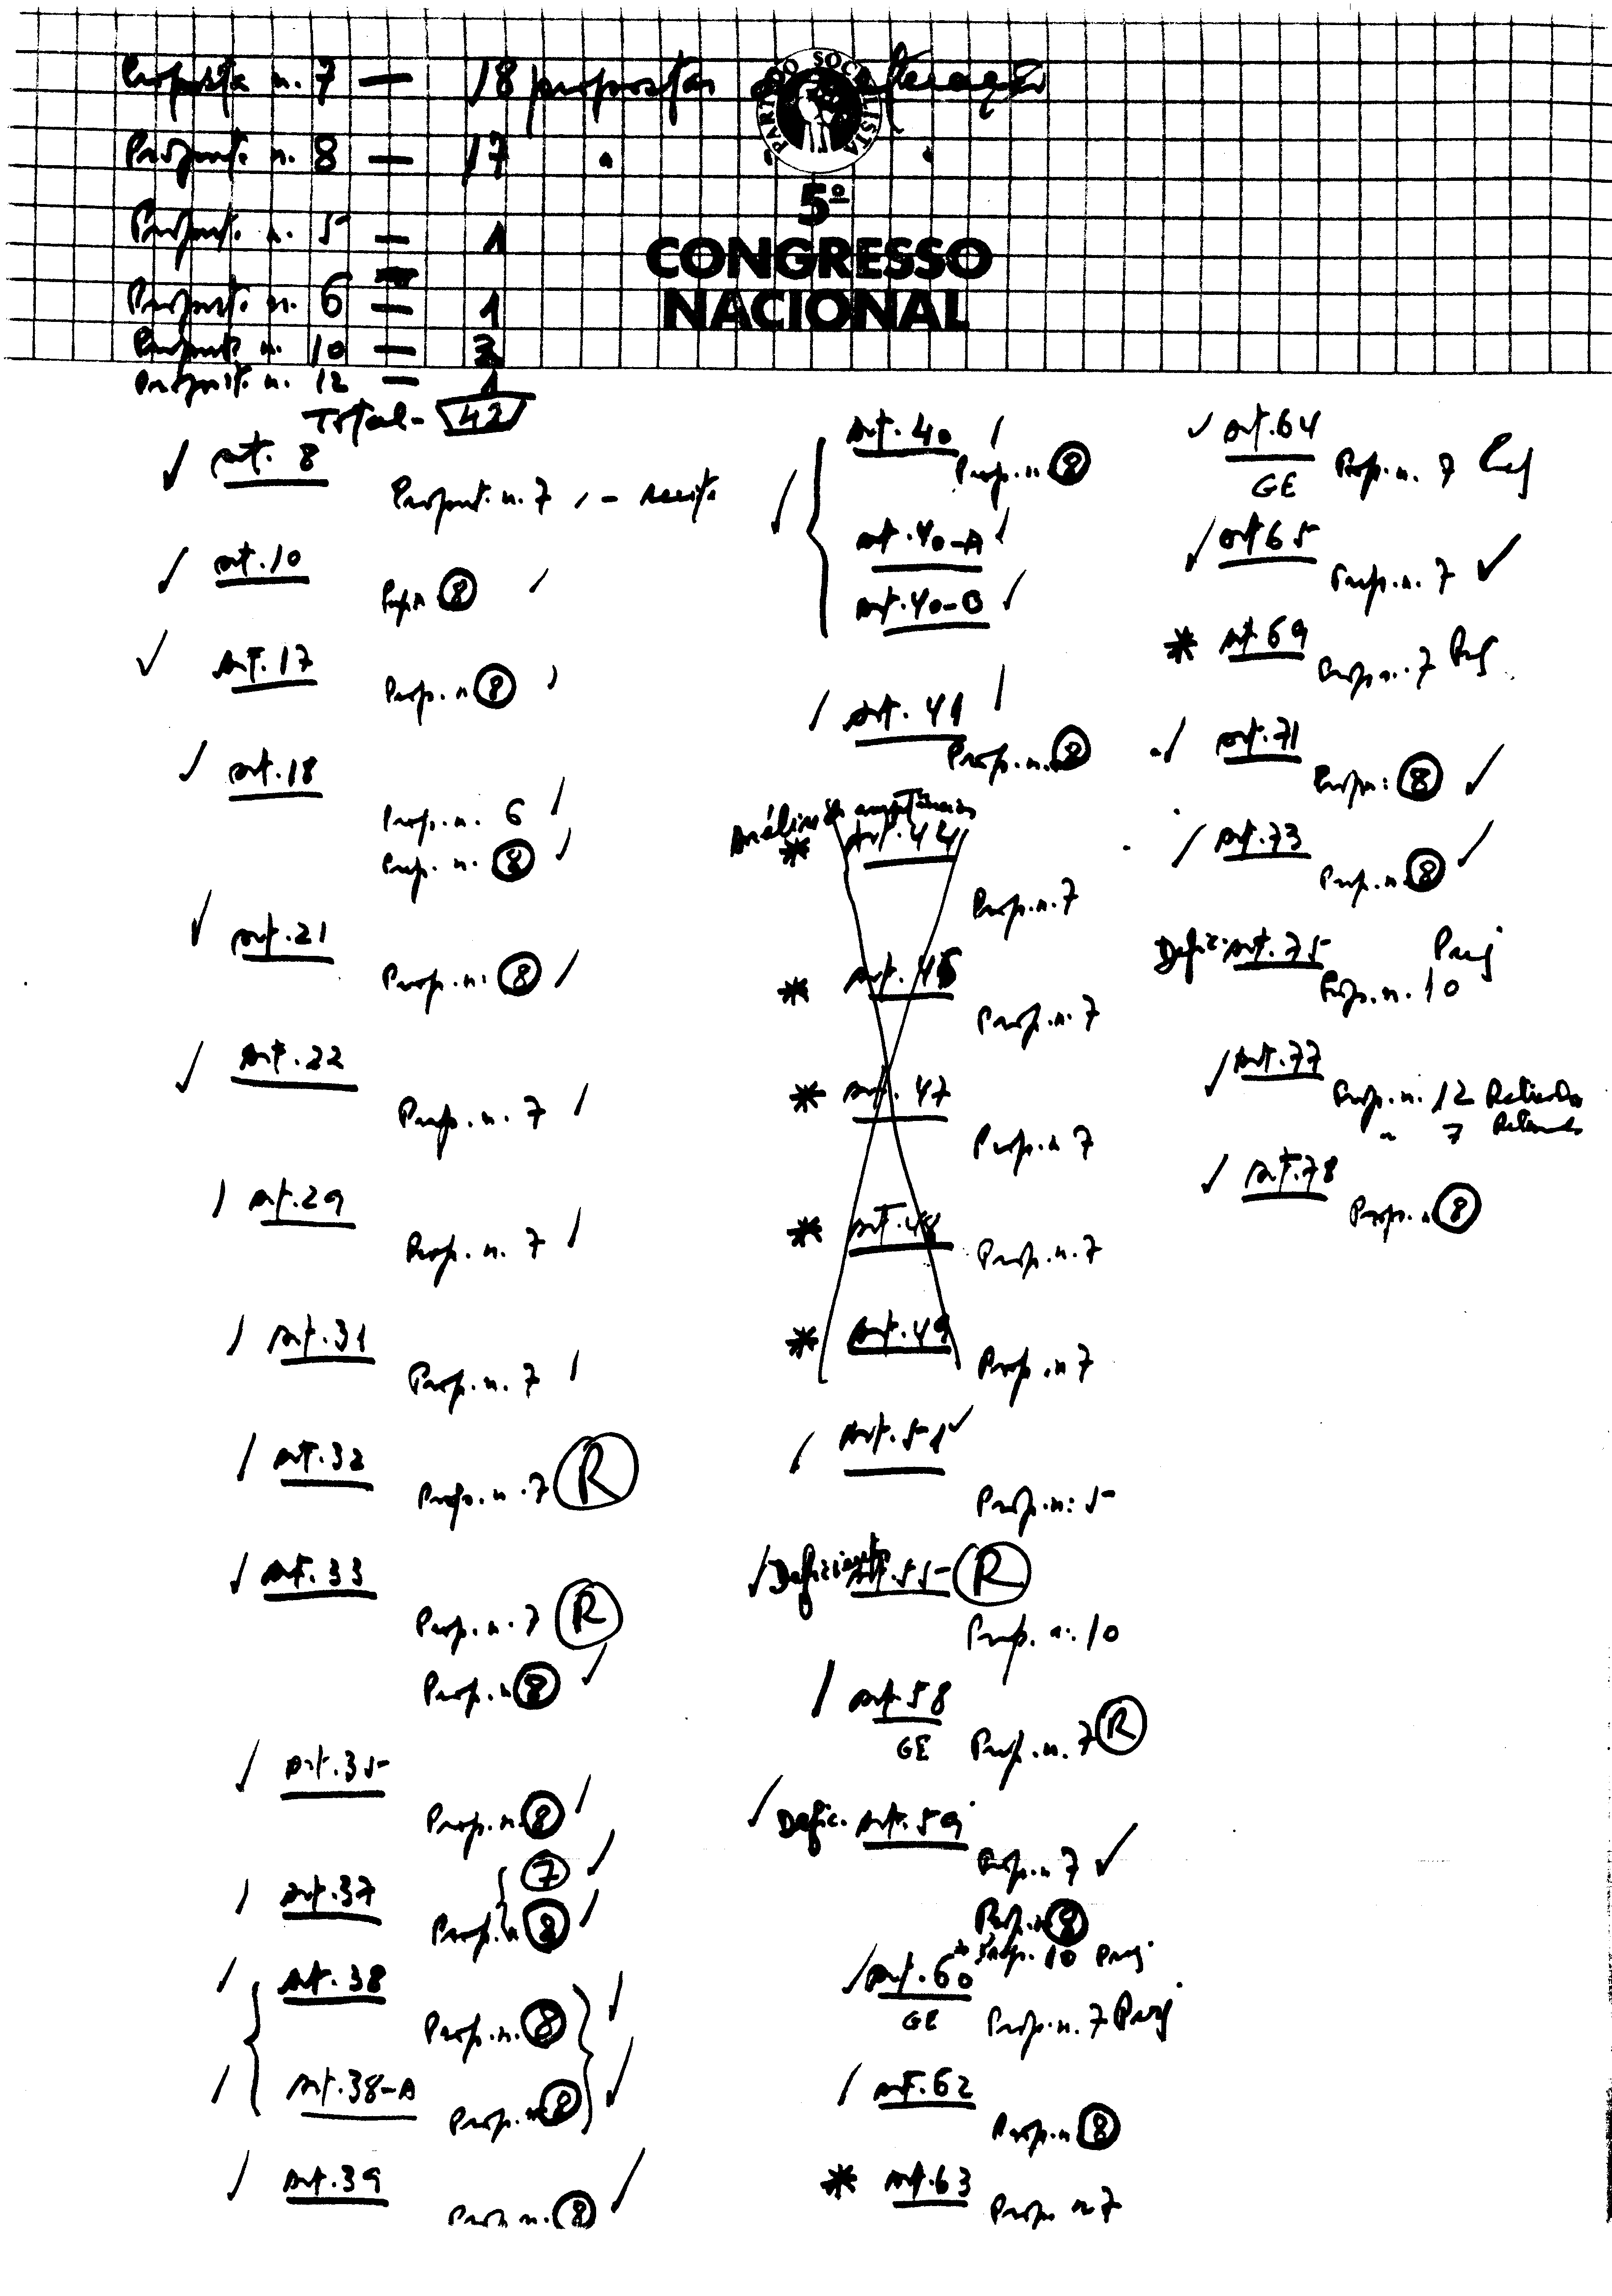 Proposta n. 7 — 18 propostas de alteração
Propost. n. 8 — 17 " " "
Propost. n. 5 — 1
Propost. n. 6 — 1
Propost. n. 10 —
Propost. n. 12 — 1
Total - 42
PARTIDO SOCIALISTA
5º
CONGRESSO
NACIONAL
art. 8
Propost. n. 7
art. 10
Prop. n 8
art. 17
Prop. n 8
art. 18
Prop. n. 6
Prop. n. 8
art. 21
Prop. n. 8
art. 22
Prop. n. 7
art. 29
Prop. n. 7
art. 31
Prop. n. 7
art. 32
Prop. n. 7 R
art. 33
Prop. n. 7 R
Prop. n 8
art. 35
Prop. n. 8
art. 37
7
Prop. n 8
art. 38
Prop. n. 8
art. 38-A
Prop. n 8
art. 39
Prop. n. 8
art. 40
Prop. n. 8
art. 40-A
art. 40-B
art. 41
Prop. n. 8
Análise
* art. 44
Prop. n. 7
* art. 46
Prop. n. 7
* art. 47
Prop. n 7
* art. 48
Prop. n. 7
* art. 49
Prop. n 7
art. 51
Prop. n. 5
art. 55 R
Prop. n. 10
art. 58
GE
Prop. n. 7 R
Defic. art. 59
Prop. n 7
Prop. n 8
Prop. 10 Prej
art. 60
GE
Prop. n. 7 Prej
art. 62
Prop. n 8
* art. 63
Prop. n 7
art. 64
GE
Prop. n. 7 Prej
art 65
Prop. n. 7
* art 69
Prop. n. 7 Prej
art. 71
Prop n. 8
art. 73
Prop. n. 8
Defic. art. 75
Prej
Prop. n. 10
art. 77
Prop. n. 12 Retirada
" 7 Retirada
art. 78
Prop. n 8